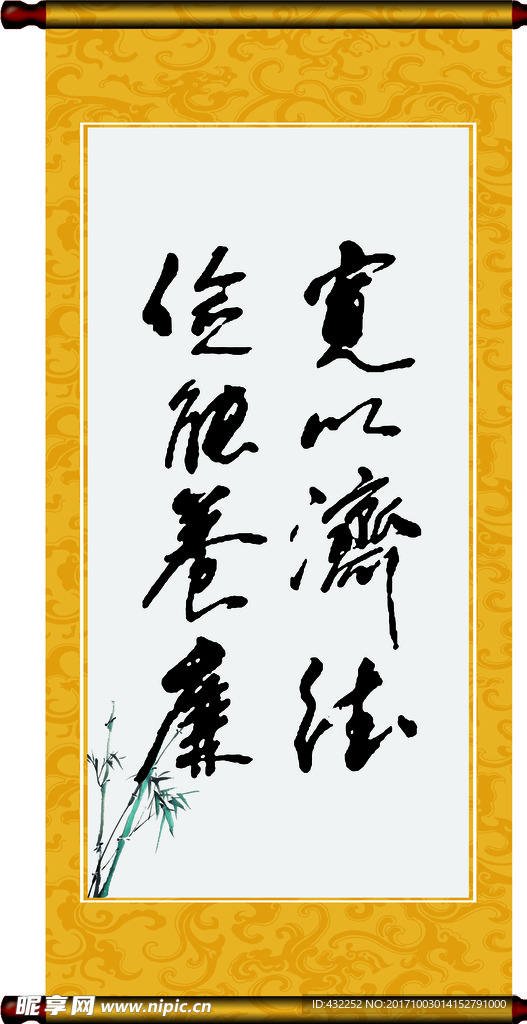 寬以濟猛
儉能養廉
昵享网 www.nipic.cn
ID:432252 NO:20171003014152791000